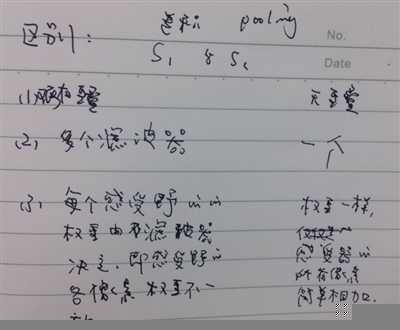 区别: 卷积 pooling
No.
S₁ 与 S₂
Date
(1) 有权重 无重量
(2), 多个滤波器 一个
(3), 每个感受野 权重一样,
权重由滤波器
决定, 即感受野 感受器
各像素权重不一 所有像素
简单相加.